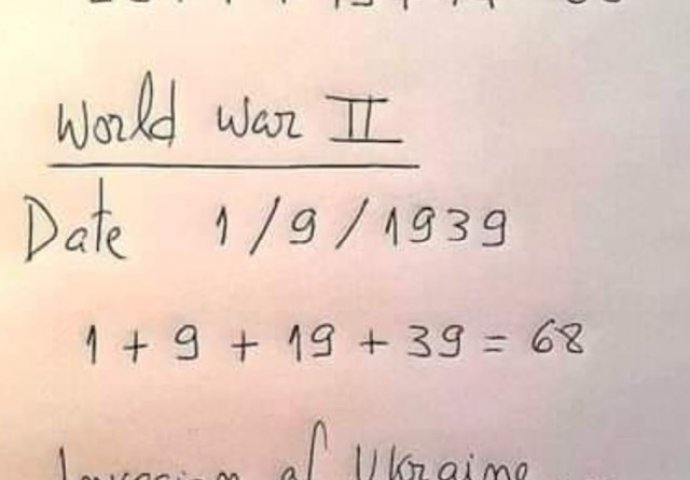 World War II
Date 1/9/1939
1 + 9 + 19 + 39 = 68
Invasion of Ukraine